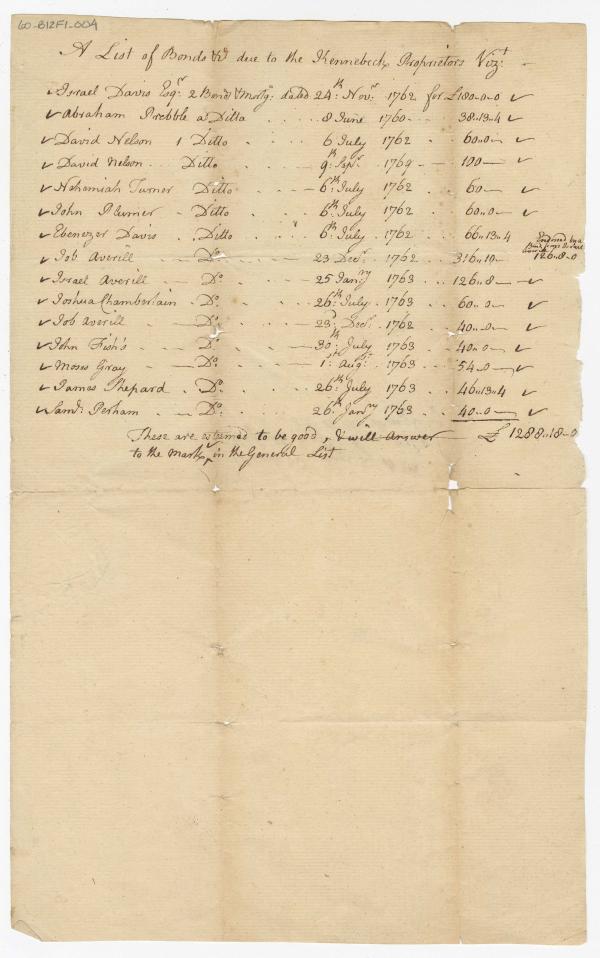 60-B12F1-004
A List of Bonds &c. due to the Kennebeck Proprietors Vizt.
✓Israel Davis Esqr. 2 Bond & Mortg. dated 24th. Novr. 1762 for £180.0.0 ✓
✓Abraham Prebble a Ditta 8 June 1760 38.13.4 ✓
✓David Nelson 1 Ditto 6 July 1762 60.0 ✓
✓David Nelson Ditto 9th. Sepr. 1769 100 ✓
✓Nehemiah Turner Ditto 6th. July 1762 60 ✓
✓John Plumer Ditto 6th. July 1762 60.0 ✓
✓Ebenezer Davis Ditto 6th. July 1762 66.13.4
Endorsed by a
✓Job Averill Do. 23 Decr. 1762 316.10 126.8.0
✓Israel Averill Do. 25 Janry 1763 126.8 ✓
✓Joshua Chamberlain Do. 26th. July 1763 60.0 ✓
✓Job Averill Do. 23d. Decr. 1762 40.0 ✓
✓John Fish's Do. 30th. July 1763 40.0 ✓
✓Moses Gray Do. 1st. Augt. 1763 54.0 ✓
✓James Shepard Do. 26th. July 1763 46.13.4 ✓
✓Saml. Perham Do. 26th. Janry 1763 40.0 ✓
These are esteemed to be good, & will answer £1288.18.0
to the mark, in the General List